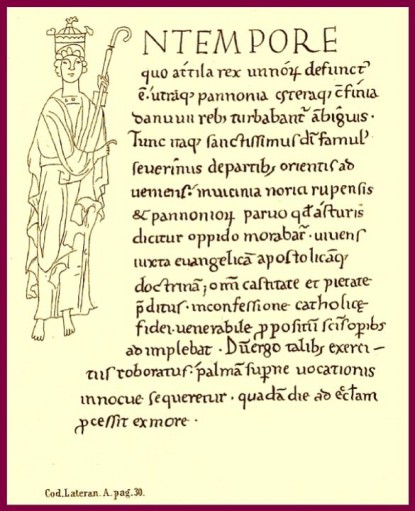 NTEMPORE
quo attila rex unnoꝝ defunctꝰ
ē· utraqꝫ pannonia cęteraqꝫ c̄finia
danuuii rebꝫ turbabant᷑ ābiguis·
Tunc itaqꝫ sanctissimus dī famulꝰ
seuerinus departibꝫ orientis ad
ueniens· inuicinia norici rupensis
& pannonioꝝ paruo qđ asturis
dicitur oppido morabat᷑· uiuens
iuxta euangelicā apostolicāqꝫ
doctrinā; om̄i castitate et pietate
p̄ditus· inconfessione catholicę
fidei· uenerabile ꝓpositū sc̄is opibꝫ
ad implebat· Dūergo talibꝫ exerci–
tiis roboratus· palmā supne uocationis
innocue sequeretur· quadā die ad ec̄łam
ꝓcessit ex more·
Cod. Lateran. A. pag. 30.